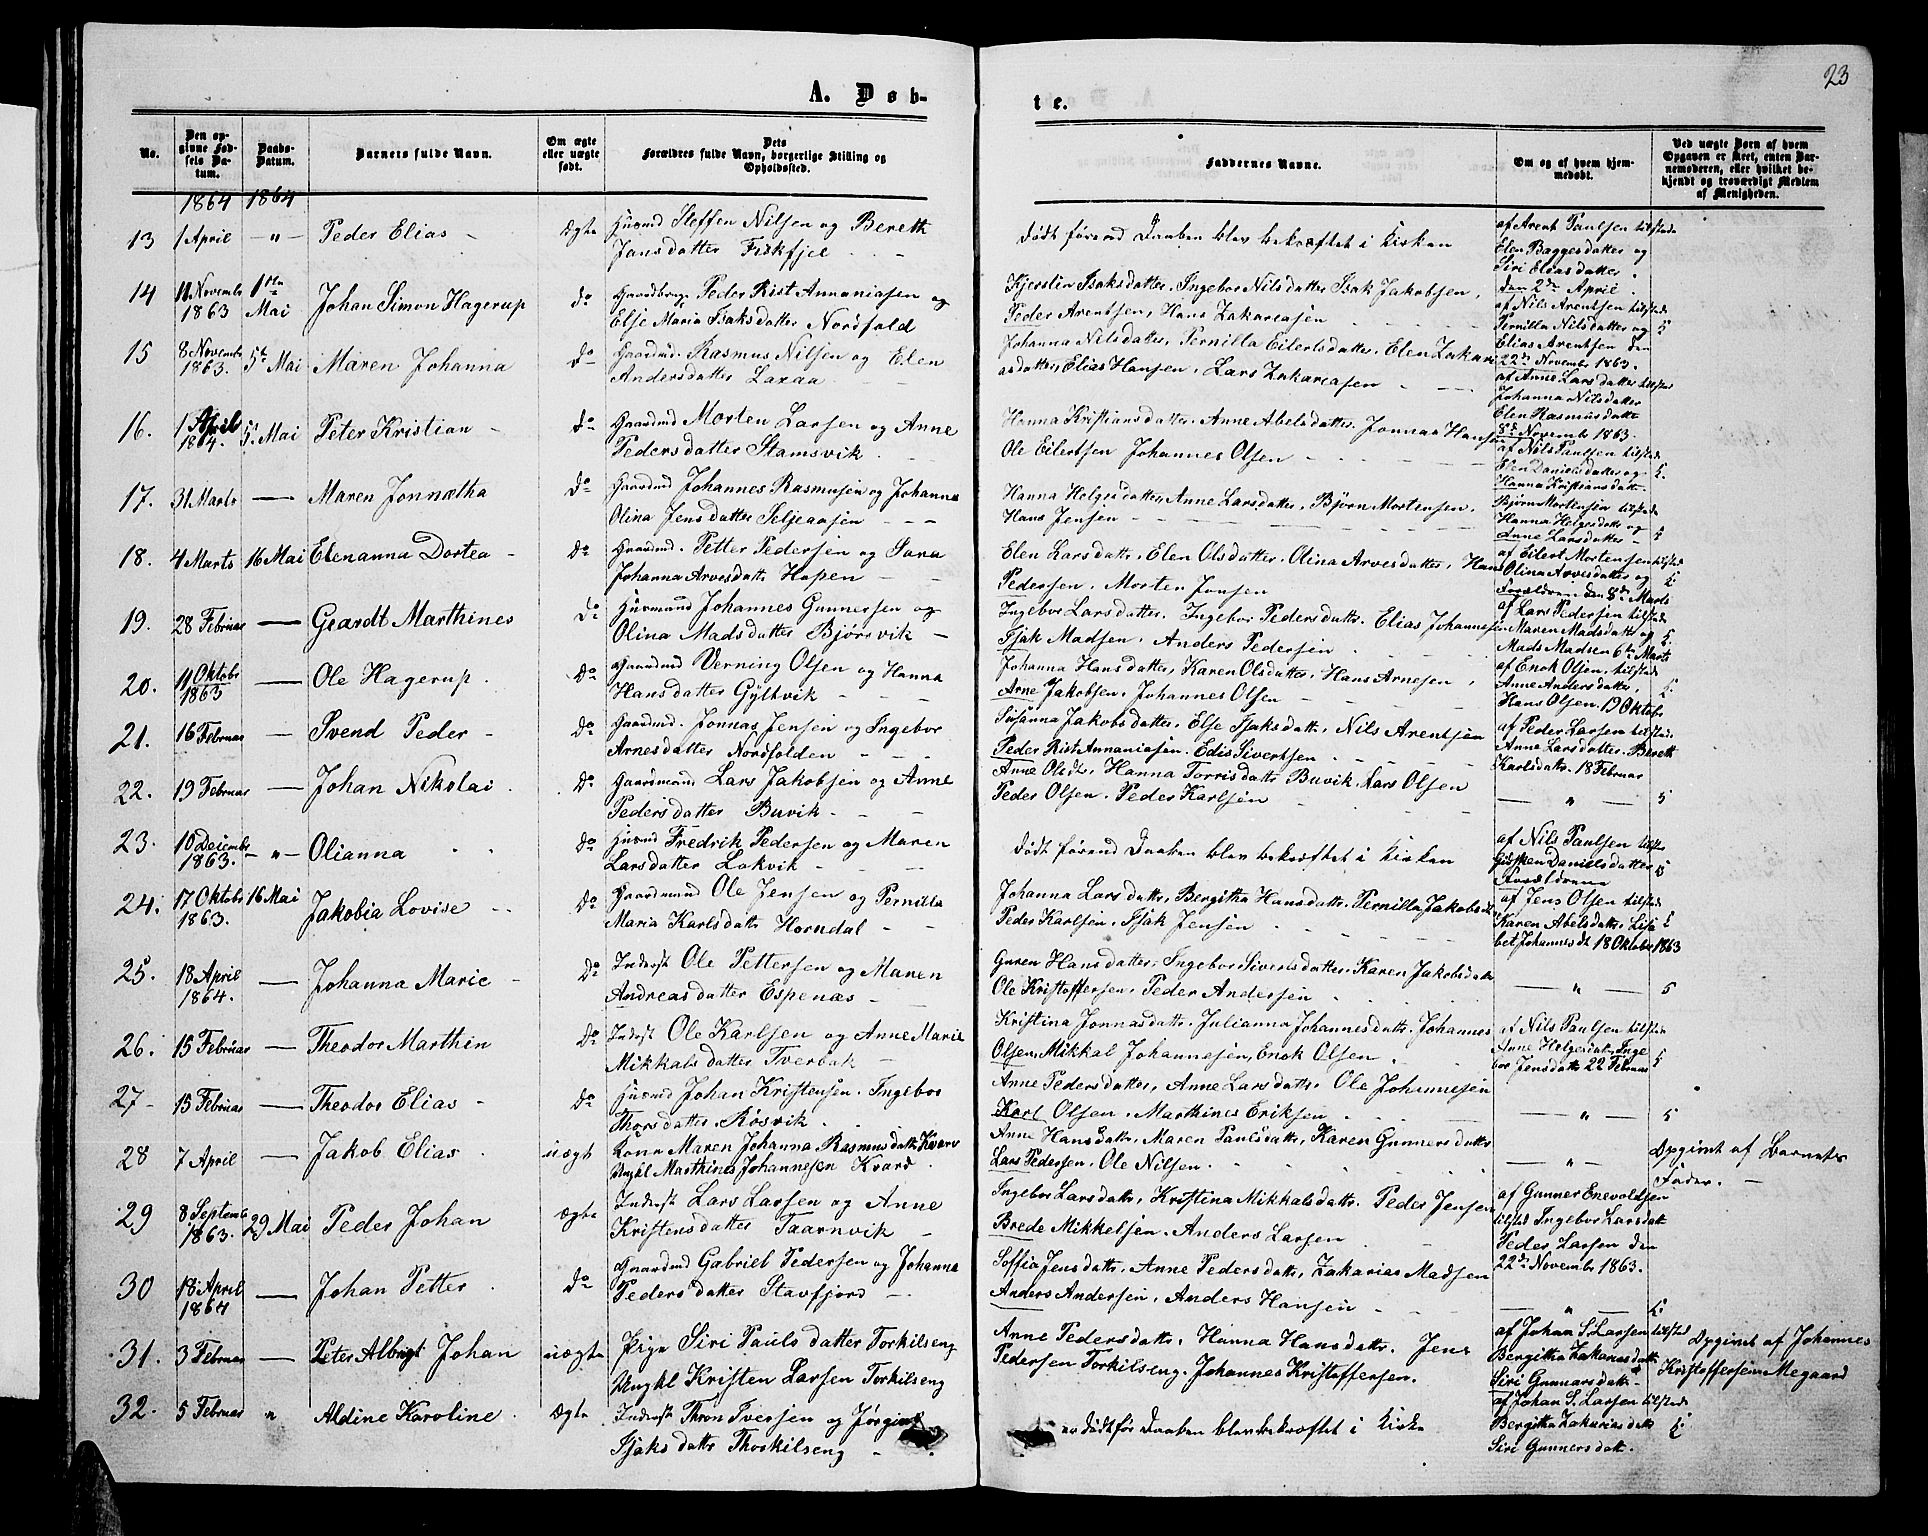 23
A. Døb-
te.
No.
Den opgivne Fødsels Datum.
Daabs-Datum.
Barnets fulde Navn.
Om ægte eller uægte født.
Dets Forældres fulde Navn, borgerlige Stilling og Opholdssted.
Faddernes Navne.
Om og af hvem hjemmedøbt.
Ved uægte Børn af hvem Opgaven er skeet, enten Barnemoderen, eller hvilket bekjendt og troværdigt Medlem af Menigheden.
1864 1864
13 1 April — " — Peder Elias - Ægte Husmd Steffen Nilsen og Bereth
Jansdatter Fiskfjel
Dødt førend Daaben blev bekræftet i Kirken
af Arent Paulsen tilstede
Elen Baggesdatter og
Siri Eliasdatter
den 2den April
14 11 Novembr 1863 1ste Mai Johan Simon Hagerup do Gaardbruger Peder Rist Annaniasen og
Else Maria Isaksdatter Nordfold
Kjerstin Isaksdatter, Ingebor Nilsdatter Isak Jakobsen,
Peder Arentsen, Hans Zakariasen
af Nils Arentsen tilstede
Pernilla Nilsdatter og
Elias Arentsen den
22de Novembr 1863.
15 8 Novembr 1863. 5te Mai Maren Johanna Do Gaardmd. Rasmus Nilsen og Elen
Andersdatter Laxaa
Johanna Nilsdatter, Pernilla Eilertsdatter, Elen Zakari
asdatter, Elias Hansen, Lars Zakariasen
af Anne Larsdatter tilsted
Johanna Nilsdatter
Elen Rasmusdatte
8de Novembr 1863.
16. 1 April 1864. 5. Mai Peter Kristian - do Gaardmd Morten Larsen og Anne
Pedersdatter Stamsvik
Hanna Kristiansdatter, Anne Abelsdatter. Jonnas Hansen
Ole Eilertsen Johannes Olsen
af Nils Paulsen tilstede
Elen Danielsdatter og
Hanna Kristiansdatt.
17. 31 Marts — Maren Jonnetha do Gaardmd Johannes Rasmusen og Johanna
Olina Jensdatter Seljeaasen
Hanna Holgersdatter, Anne Larsdatter, Bjørn Mortensen,
Hans Jensen
Bjørn Mortensen tilstede
Hanna Holgersdatte og
Anne Larsdatter -
18. 4 Marts 16 Mai Elenanna Dortea - do Gaardmd. Petter Pedersen og Sara
Johanna Arvesdatter Hopen
Elen Larsdatter, Elen Olsdatter, Olina Arvesdatter, Hans
Pedersen, Morten Jonsen
af Eilert Mortensen tilstede
Olina Arvesdatter og
Forældrene den 8de Marts
19. 28 Februar — Geardt Marthines do Husmand Johannes Gunnersen og
Olina Madsdatter Bjørsvik -
Ingebor Larsdatter. Ingebor Pedersdatter. Elias Johannesen
Isak Madsen. Anders Pedersen
af Lars Pedersen tilstede
Maren Madsdatte og
Mads Madsen 6te Marts
20. 11 Oktobr 1863 — Ole Hagerup. Do Gaardmd Verning Olsen og Hanna
Hansdatter Gyltvik
Johanna Hansdatter, Karen Olsdatter, Hans Arnesen,
Arne Jakobsen, Johannes Olsen
af Enok Olsen, tilstede
Anne Andersdatter,
Hans Olsen. 19 Oktobr
21. 16 Februar — Svend Peder - do Gaardmd. Jonnas Jensen og Ingebor
Arnesdatter Nordfolden
Susanna Jakobsdatter. Else Isaksdatt. Nils Arentsen
Peder Rist Annaniasen. Edis Sivertsen.
af Peder Larsen tilsted
Anne Larsdatter. Bereth
Karlsdatter. 18 Februar
22. 19 Februar — Johan Nikolai Do Gaardmand Lars Jakobsen og Anne
Pedersdatter Buvik
Anne Olsdt. Hanna Torrisdatter Buvik. Lars Olsen
Peder Olsen. Peder Karlsen
— " — 5
23. 10 Decembr 1863. — " — Olianna do Husmd Fredrik Pedersen og Maren
Larsdatter Løkvik
Dødt førend Daaben blev bekræftet i Kirken
af Nils Paulsen tilsted
Danielsdatter
Forældrene
24. 17 Oktobr 1863. 16 Mai Jakobia Lovise do Gaardmand Ole Jensen og Pernilla
Maria Karlsdatter Horndal
Johanna Larsdatter, Bergitha Hansdatter, Pernilla Jakobsdt
Peder Karlsen, Isak Jensen
af Jens Olsen tilstede
Karen Abelsdatter, Lisa
bet Johannesdt 18 Oktobr 1863
25. 18 April 1864. — Johanna Marie - do Inderst Ole Pettersen og Maren
Andreasdatter Espenæs
Guren Hansdatter, Ingebor Sivertsdatter, Karen Jakobsdatter
Ole Kristoffersen, Peder Andersen
— " — 5
26. 15 Februar — Theodor Marthin Do Inderst Ole Karlsen og Anne Marie
Mikkalsdatter Tverbak
Kristina Jonnasdatter. Julianna Johannesdatter. Johannes
Olsen, Mikkal Johannesen, Enok Olsen
af Nils Paulsen tilstede
Anne Holgersdatt, Inge
bor Jensdatter 22 Februar 5
27 - 15 Februar — Theodor Elias - do Husmd Johan Kristensen. Ingebor
Thorsdatter Røsvik
Anne Pedersdatter, Anne Larsdatter. Ole Johannesen
Karl Olsen, Marthines Eriksen
— " — 5
28 7 April — Jakob Elias uægt Kone Maren Johanna Rasmusdatter Kvarv
Ungkl Marthines Johannesen Kvarv
Anne Hansdatter, Maren Paulsdatter, Karen Gunnersdatter
Lars Pedersen. Ole Nilsen
— " —
Opgivet af Barnets
Fader.
29 8 Septembr 1863. 29 Mai Peder Johan ægte Inderst Lars Larsen og Anne
Kristensdatter Taarnvik
Ingebor Larsdatter, Kristina Mikkalsdatter. Peder Jensen
Brede Mikkelsen. Anders Larsen
af Gunner Enevoldsen
tilsted Ingebor Larsdatt
Peder Larsen den
22de Novembr 1863.
30 18 April 1864 — Johan Petter do Gaardmd Gabriel Pedersen og Johanna
Pedersdatter Stavfjord
Soffia Jensdatter, Anne Pedersdatter, Zakarias Madsen
Anders Andersen, Anders Hansen
— " —
31. 3 Februar — Peter Albrigt Johan uægte Pige Siri Paulsdatter Torkilseng
Ungkl Kristen Larsen Torkilseng
Anne Pedersdatter. Hanna Hansdatter. Jens
Pedersen Torkilseng. Johannes Kristoffersen.
af Johan S. Larsen tilsted
Bergitha Zakariasdatter
Siri Gunnarsdatt.
Opgivet af Johannes
Kristoffersen Megaard
32. 5 Februar " Aldine Karoline Ægte Inderst Thron Iversen og Jørgine
Isaksdatter Thorkilseng
er dødt før Daaben blev bekræftet i Kirke
af Johan S. Larsen tilstede
Bergitha Zakariasdatt
Siri Gunnersdatt.